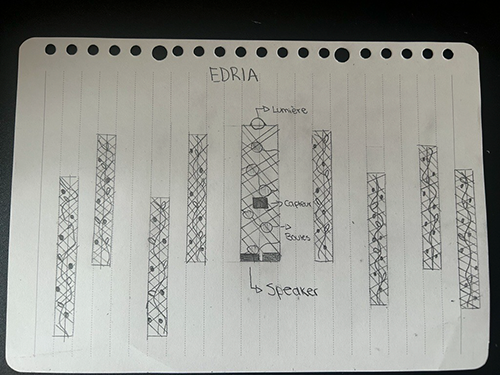 EDRIA
Lumière
Capteur
Boules
Speaker